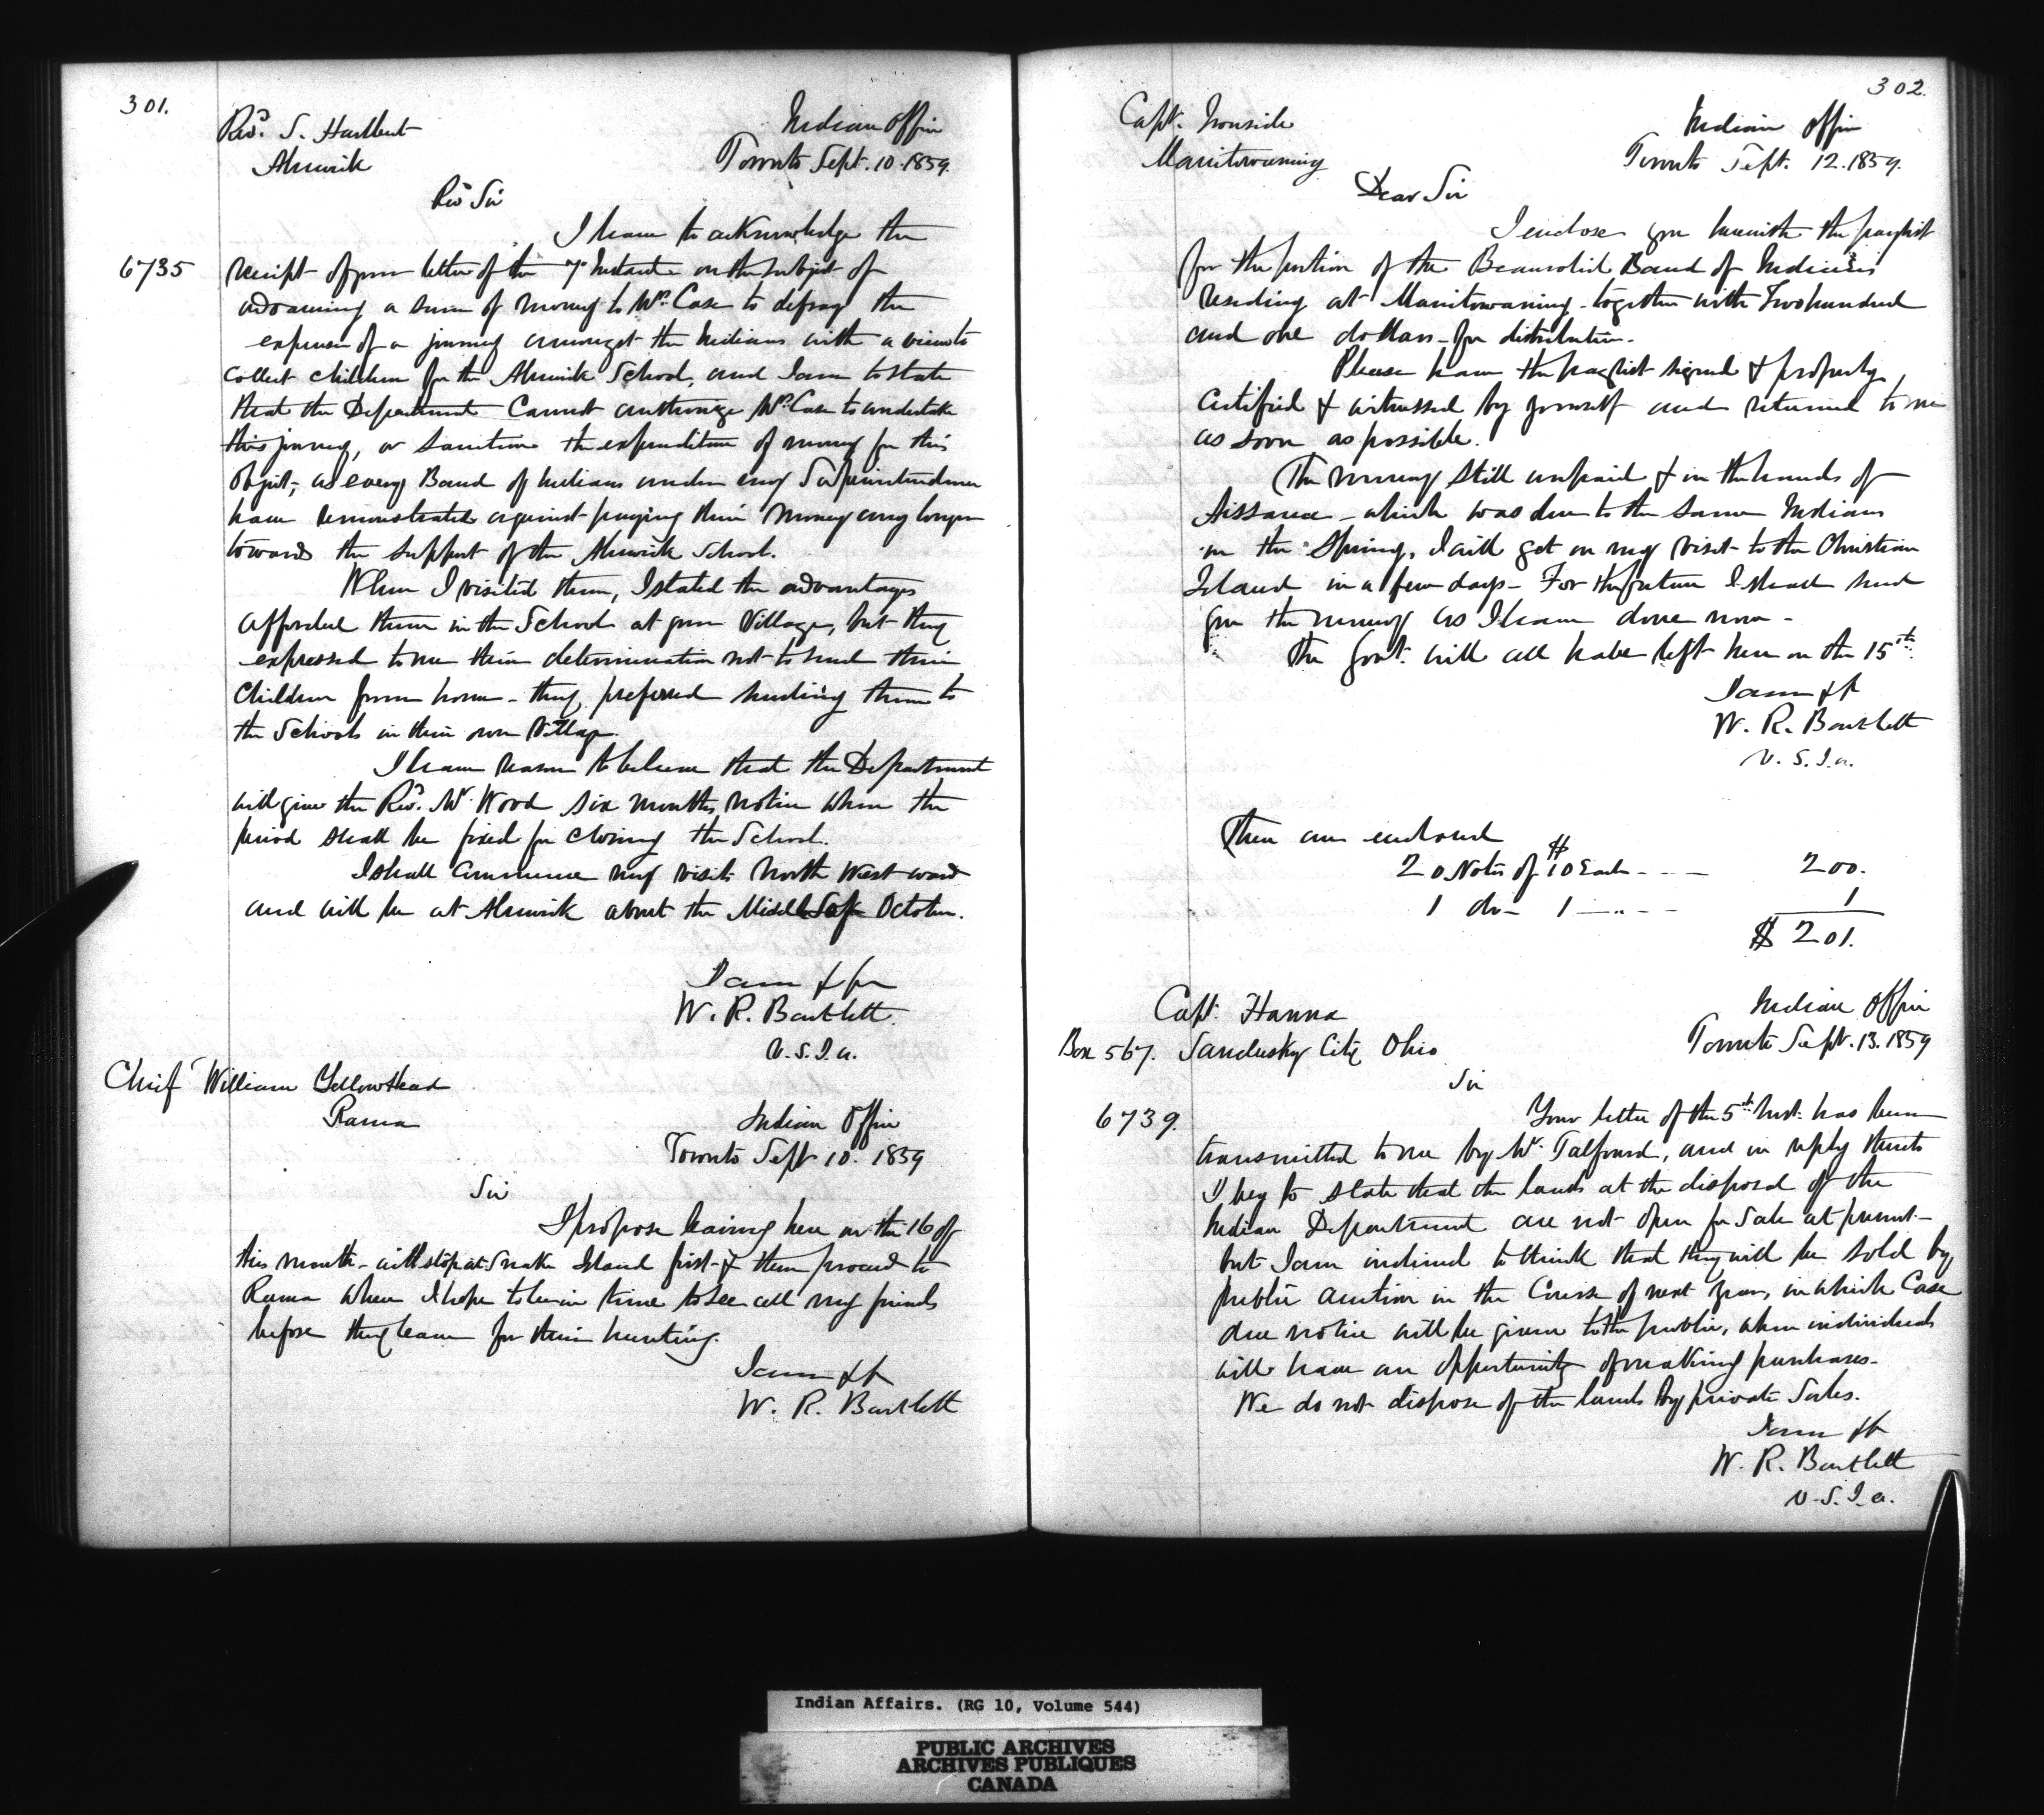 301.
Revd. S. Hurlburt
Alnwick
Indian Office
Toronto Sept. 10. 1859.
Revd Sir
I have to acknowledge the
6735 receipt of your letter of the 7th Instant on the subject of
advancing a sum of money to Mr. Case to defray the
expense of a journey amongst the Indians with a view to
collect children for the Alnwick School, and I am to state
that the Department cannot authorize Mr. Case to undertake
this journey, or sanction the expenditure of money for this
object, as every Band of Indians under my Superintendence
have remonstrated against paying their money any longer
towards the support of the Alnwick School.
When I visited them, I stated the advantages
afforded them in the School at your Village, but they
expressed to me their determination not to send their
children from home - they preferred sending them to
the Schools in their own Village.
I have reason to believe that the Department
will give the Revd. Mr. Wood six months notice when the
period shall be fixed for closing the School.
I shall commence my visits North Westward
and will be at Alnwick about the Middle of October.
I am &c
W. R. Bartlett.
V. S. I. a.
Chief William Yellowhead
Rama
Indian Office
Toronto Sept 10. 1859
Sir
I propose leaving here on the 16 of
this month - will stop at Snake Island first & then proceed to
Rama where I hope to be in time to see all my friends
before they leave for their hunting.
I am &c
W. R. Bartlett
302.
Capt. Ironside
Manitowaning
Indian Office
Toronto Sept. 12. 1859.
Dear Sir
I enclose you herewith the paylist
for the portion of the Beausoliel Band of Indians
residing at Manitowaning - together with Two hundred
and one dollars - for distribution.
Please have the paylist signed & properly
certified & witnessed by yourself and returned to me
as soon as possible.
The money still unpaid & in the hands of
Aissance - which was due to the same Indians
in the Spring, I will get on my visit to the Christian
Island in a few days - For the future I shall send
you the money as I have done now -
The Govt. will all have left here on the 15th.
I am &c
W. R. Bartlett
V. S. I. a.
There are enclosed
20 Notes of $10 Each - - - 200.
1 do - 1 - " - - 1
$ 201.
Capt. Hanna
Box 567. Sandusky City Ohio
Indian Office
Toronto Sept. 13. 1859
Sir
6739. Your letter of the 5th Inst. has been
transmitted to me by Mr. Talfourd, and in reply thereto
I beg to state that the lands at the disposal of the
Indian Department are not open for Sale at present -
but I am inclined to think that they will be sold by
public auction in the Course of next year, in which Case
due notice will be given to the public, when individuals
will have an opportunity of making purchases -
We do not dispose of the lands by private Sales.
I am &c
W. R. Bartlett
V. S. I. a.
Indian Affairs. (RG 10, Volume 544)
PUBLIC ARCHIVES
ARCHIVES PUBLIQUES
CANADA